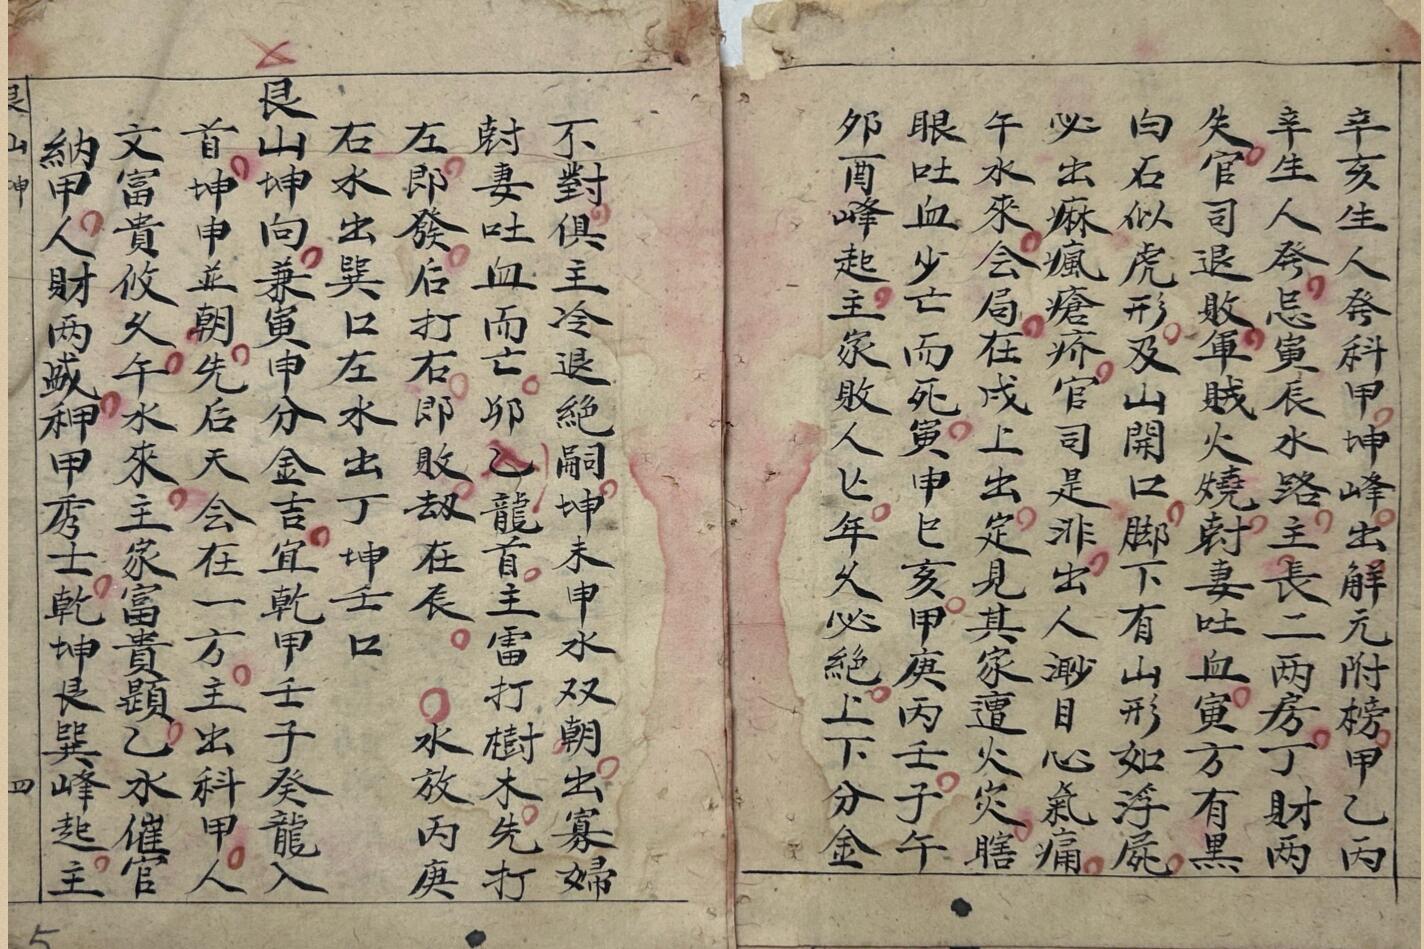 辛亥生人癸科甲坤峰出解元附榜甲乙丙
辛生人癸忌寅辰水路主長二两房丁財两
失官司退敗軍賊火燒尅妻吐血寅方有黑
白石似虎形及山開口脚下有山形如浮屍
必出麻瘋瘡疥官司是非出人渺目心氣痛
午水來会局在戌上出定見其家遭火灾瞎
眼吐血少亡而死寅申巳亥甲庚丙壬子午
夘酉峰起主家敗人亡年久必絕上下分金
不對俱主冷退絕嗣坤未申水双朝出寡婦
尅妻吐血而亡夘乙龍首主雷打樹木先打
左郎發后打右郎敗劫在辰 水放丙庚
右水出巽口左水出丁坤壬口
艮山坤向兼寅申分金吉宜乾甲壬子癸龍入
首坤申並朝先后天会在一方主出科甲人
文富貴攸久午水來主家富貴顕乙水催官
納甲人財两盛科甲秀士乾坤艮巽峰起主
艮山坤
四
5